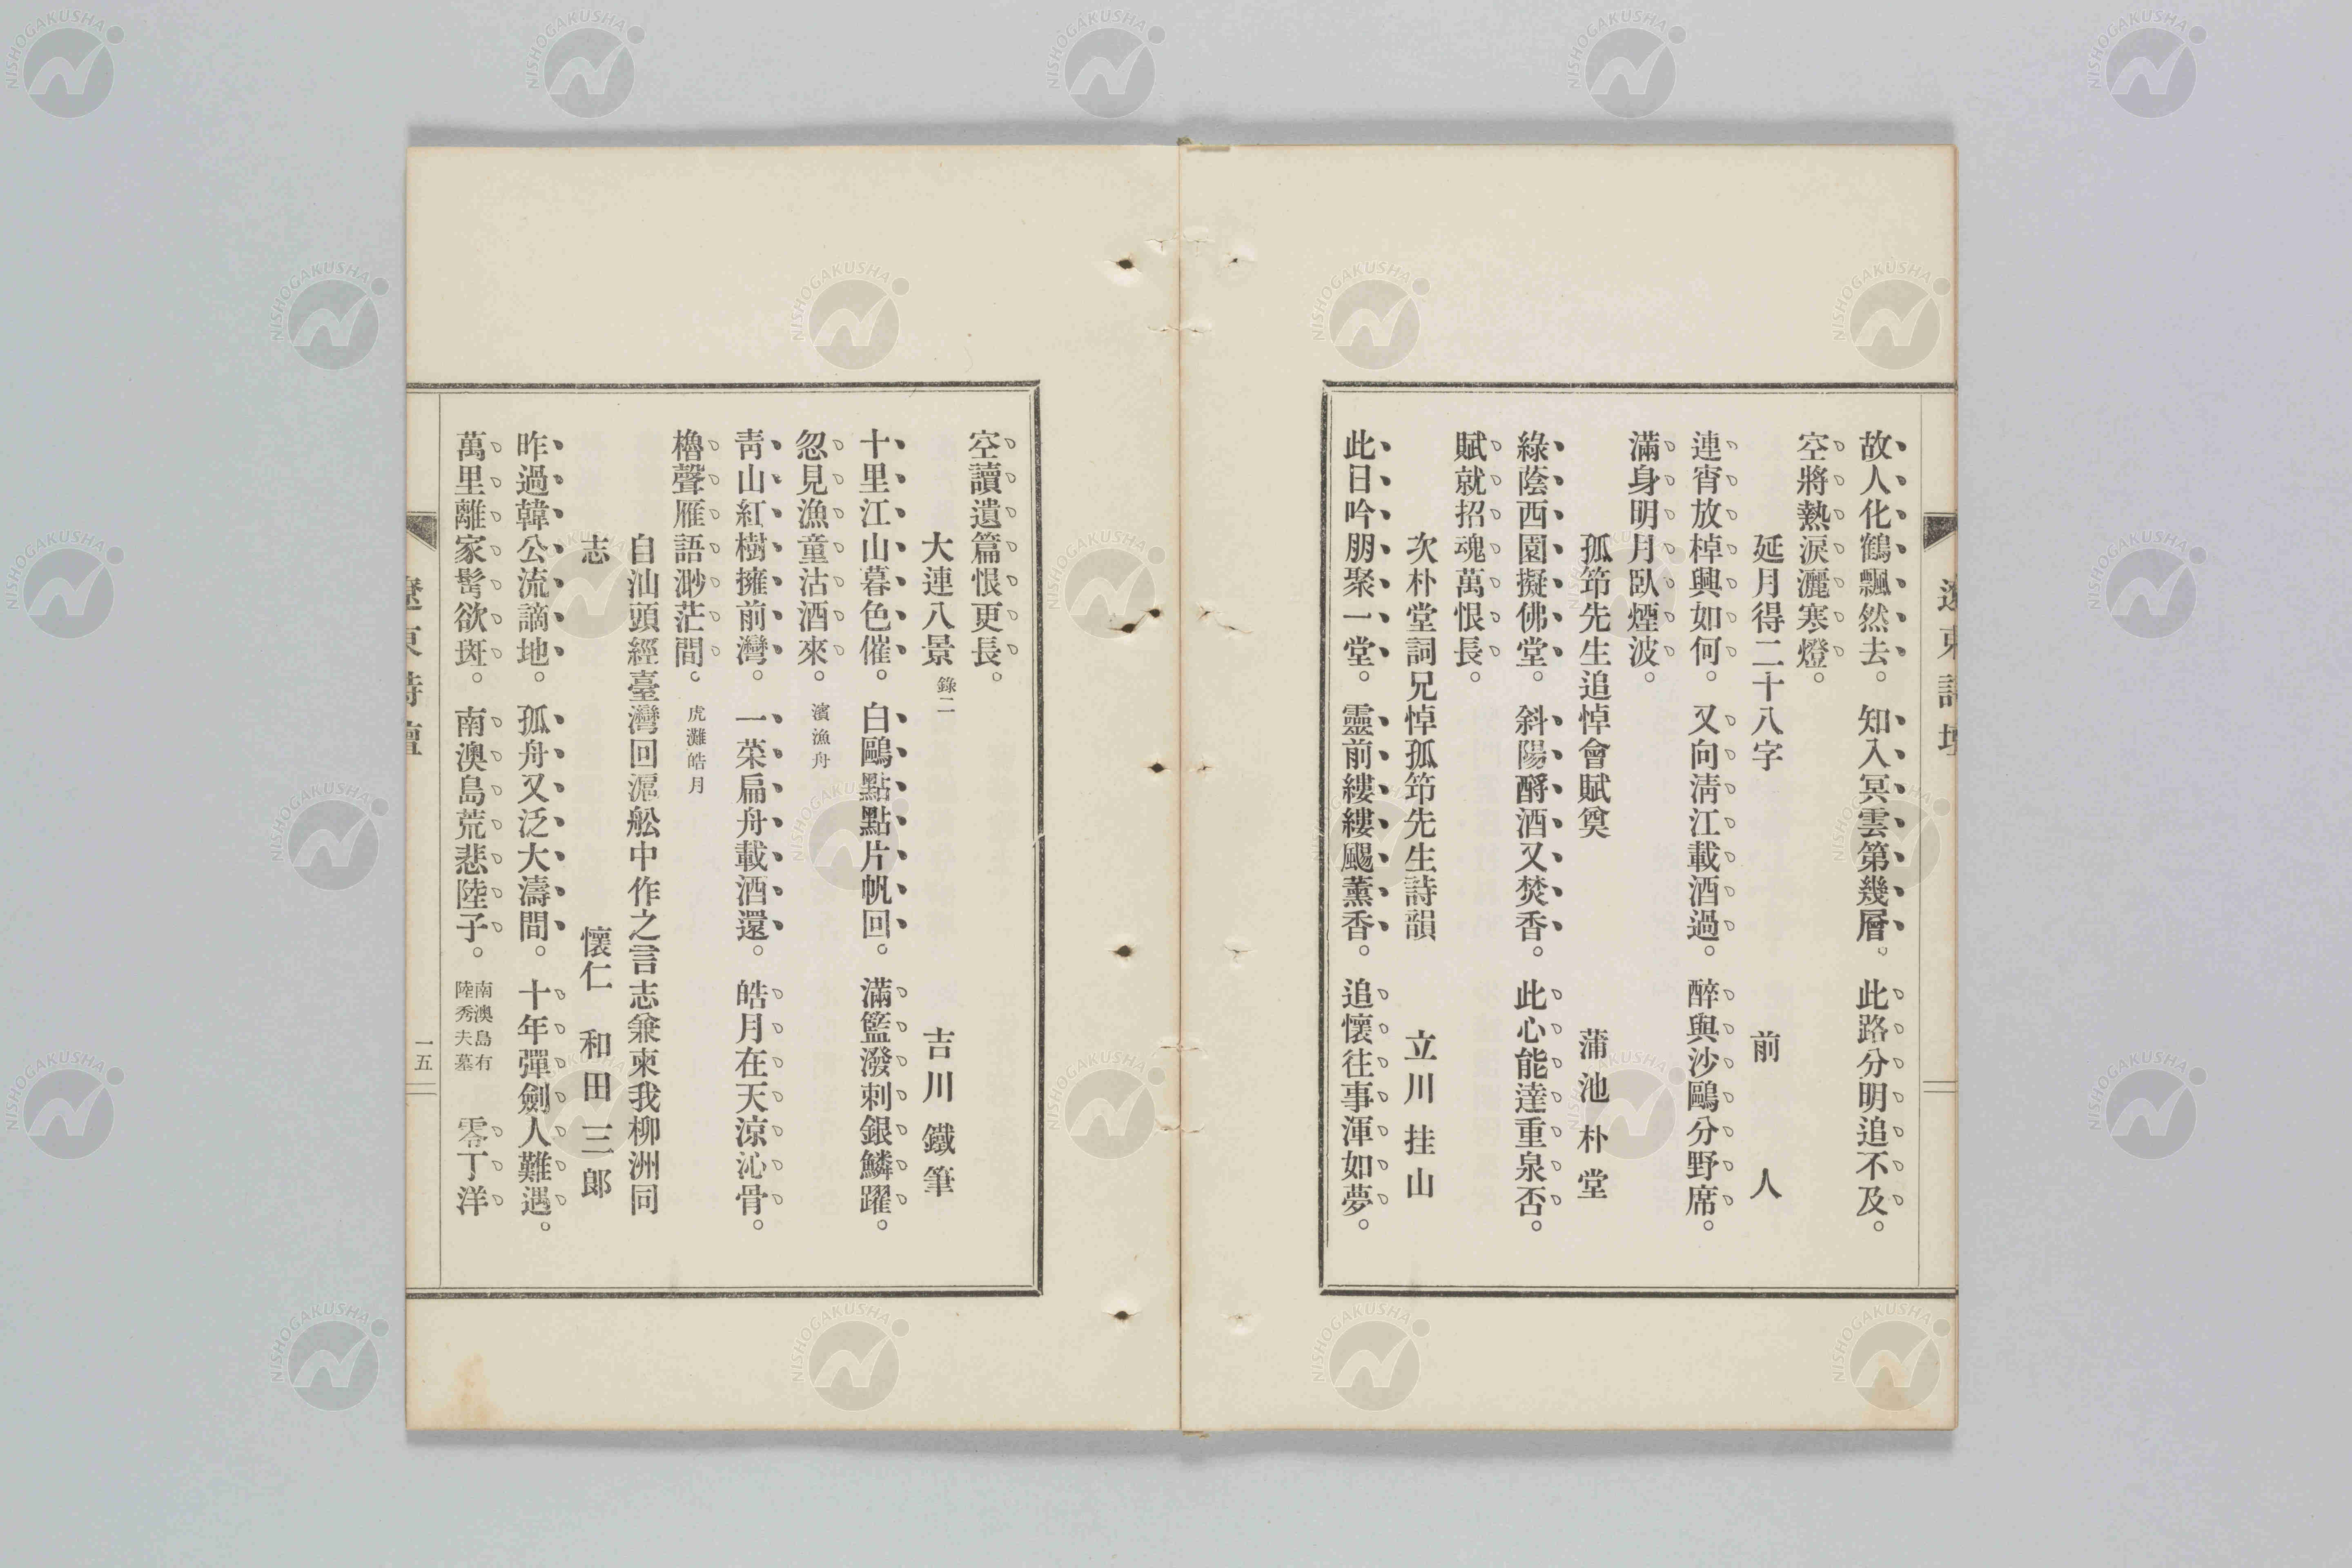 故人化鶴飄然去。知入冥雲第幾層。此路分明追不及。
空將熱淚灑寒燈。
延月得二十八字 前人
連宵放棹興如何。又向淸江載酒過。醉與沙鷗分野席。
滿身明月臥煙波。
孤笻先生追悼會賦奠 蒲池朴堂
綠蔭西園擬佛堂。斜陽酹酒又焚香。此心能達重泉否。
賦就招魂萬恨長。
次朴堂詞兄悼孤笻先生詩韻 立川挂山
此日吟朋聚一堂。靈前縷縷颺薰香。追懷往事渾如夢。
空讀遺篇恨更長。
大連八景 錄二 吉川鐵筆
十里江山暮色催。白鷗點點片帆回。滿籃潑刺銀鱗躍。
忽見漁童沽酒來。 濱漁舟
靑山紅樹擁前灣。一葉扁舟載酒還。皓月在天涼沁骨。
櫓聲雁語渺茫間。 虎灘皓月
自汕頭經臺灣回滬舩中作之言志兼柬我柳洲同
志 懷仁 和田三郞
昨過韓公流謫地。孤舟又泛大濤間。十年彈劍人難遇。
萬里離家髩欲斑。南澳島荒悲陸子。 南澳島有陸秀夫墓 零丁洋
遼東詩壇
一五
NISHOGAKUSHA